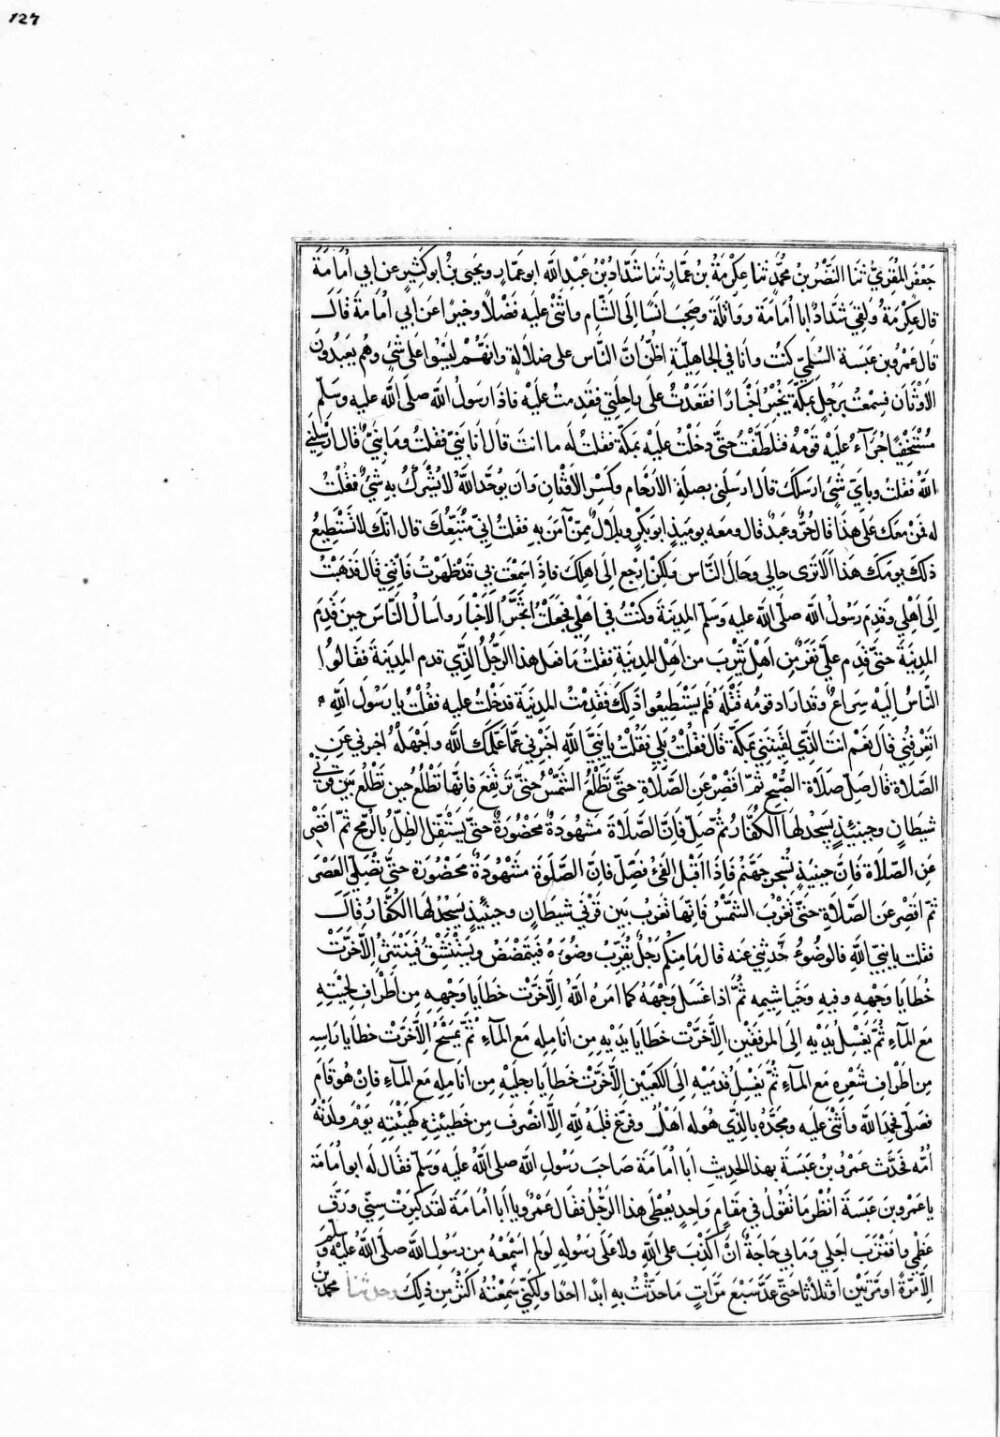 127
جَعْفَرٍ المَقْرِيُّ ثَنَا النَّضْرُ بْنُ مُحَمَّدٍ ثنا عِكْرِمَةُ بْنُ عَمَّارٍ ثَنَا شَدَّادُ بْنُ عَبْدِ اللَّهِ ابو عَمَّارٍ ويَحيى بْنُ ابو كَثِيرٍ عن ابي أُمَامَةَ
قال عِكْرِمَةُ ولَقِيَ شَدَّادٌ ابا أُمَامَةَ وواثلَةَ وصَحِبَ انَسًا إلَى الشَّامِ واثْنَى عليه فَضْلًا وخيرًا عَن ابي أُمَامَةَ قَالَ
قال عَمْرُو بن عَبَسَةَ السُّلَمِيّ كُنْتُ وأنَا في الجَاهِلِيَّةِ أظُنُّ انَّ النَّاسَ على ضَلالَةٍ وانَّهُمْ لَيْسُوا عَلى شَيْءٍ وهُم يعَبُدُونَ
الأوْثَانَ فسِمعْتُ بِرَجُلٍ بمَكَّةَ يُخْبِرُ أخْبَارًا فقَعَدْتُ على راحِلَتِي فقَدِمتُ عليْهِ فاذَا رَسُولُ اللَّه صلَّى الله عليه وسَلَّم
مُسْتَخْفِيًا جُرَآءُ عليْهِ قَوْمُهُ فتَلَطَّفْتُ حتَّى دَخَلْتُ عليْهِ بمَكَّةَ فقلتُ لَه ما انتَ قال أنَا نَبيٌّ فقلتُ ومَا نَبيٌّ قال ارْسَلَنِي
اللَّهُ فقلتُ وبِأيِّ شَيْءٍ ارسَلَكَ قال ارسَلَنِي بصِلَةِ الأرحَامِ وكَسْرِ الاوْثَانِ وان يُوحَّدَ اللَّهُ لا يُشْرَكُ بِهِ شَيْءٌ فقُلْتُ
له فمَنْ معَكَ على هَذَا قَالَ حُرٌّ وعَبدٌ قال ومعَه يومَئذٍ ابو بَكْرٍ وبِلالٌ ممَّنْ آمَنَ بهِ فقُلتُ إنِّي مُتَّبِعُكَ قال انَّكَ لا تَسْتَطِيعُ
ذلكَ يومَكَ هَذَا ألَا تَرَى حَالِي وحَالَ النَّاسِ ولَكِنِ ارْجِع إلَى اهلِكَ فإذَا سَمِعْتَ بِي قَد ظَهَرْتُ فَأتِنِي قَال فَذَهَبْتُ
إلَى أهْلِي وقَدِمَ رَسُولُ اللَّه صلَّى اللَّه عليه وسَلَّم المدِينَةَ وكُنْتُ في أهْلِي فجَعَلْتُ أتَخَبَّرُ الأخْبَارَ واسألُ النَّاسَ حِينَ قَدِمَ
المدِينَةَ حتَّى قَدِم علَيَّ نَفَرٌ مِن اهْلِ يَثْرِبَ من اهْلِ المدِينَةِ فقلتُ مَا فعَلَ هذا الرَّجُلُ الَّذِي قدم المدِينَةَ فقَالُوا
النَّاسُ إليْهِ سِرَاعٌ وقَد ارَادَ قومُه قَتْلَهُ فلَم يَسْتَطِيعُوا ذَلِكَ فقَدِمْتُ المدِينَةَ فدَخَلتُ عليه فقُلْتُ يا رَسُولَ اللَّهِ
اتَعْرِفُنِي قال نَعَم انتَ الَّذِي لقِيتَنِي بمَكَّةَ قَال فقُلْتُ بلَى فقُلْتُ يا نَبِيَّ اللَّهِ أخْبِرْنِي عمَّا عَلَّمَكَ اللَّه وأجْهَلُهُ اخبِرنِي عَنِ
الصَّلاةِ قَال صَلِّ صَلَاةَ الصُّبْحِ ثُمَّ اقصِرْ عَنِ الصَّلاةِ حتَّى تَطْلُعَ الشَّمْسُ حتَّى تَرتَفِعَ فَانَّهَا تَطْلُعُ حِينَ تَطْلُعُ بَيْن قَرْنَيْ
شيطَانٍ وحِينَئِذٍ يسجُدُ لهَا الكُفَّارُ ثُمَّ صَلِّ فَإنَّ الصَّلَاةَ مَشْهُودَةٌ مَحْضُورَةٌ حتَّى يَسْتَقِلَّ الظِّلُّ بالرُّمحِ ثمَّ اقصُر
عَنِ الصَّلَاةِ فَإنَّ حِينَئِذٍ تُسْجَرُ جهَنَّمُ فَإذَا اقْبَلَ الفَيْءُ فَصَلِّ فَانَّ الصَّلَوةَ مَشْهُودَةٌ محَضُورَةٌ حتَّى تُصَلِّيَ العَصْرَ
ثمَّ اقصِرْ عَنِ الصَّلاةِ حتَّى تَغْرُبَ الشَّمْسُ فَانَّهَا تَغرُبُ بَيْن قَرْنَي شيطَانٍ وحِينَئِذٍ يَسجُدُ لهَا الكُفَّارُ قَالَ
فقلت يا نَبِيَّ اللَّهِ فالوُضُوءُ حَدِّثْنِي عَنه قال مَا مِنكُم رَجُلٌ يُقَرِّبُ وضُوءَهُ فيَتَمَضْمَضُ ويَسْتَنْشِقُ فَيَنْتَثِرُ إلَّا خَرَّتْ
خَطَايَا وَجْهِهِ وفِيهِ وخَيَاشِيمِهِ ثُمَّ اذَا غَسَلَ وَجْهَهُ كمَا امَرَهُ اللَّهُ إلَّا خَرَّتْ خَطَايَا وَجْهِهِ مِن اطْرَافِ لِحْيَتِهِ
مَعَ المَآءِ ثُمَّ يَغْسِلُ يدَيْهِ إلَى المِرفَقَيْنِ إلَّا خَرَّتْ خطَايَا يدَيْهِ مِن انَامِلِهِ مَعَ المَآءِ ثمَّ يَمْسَحُ إلَّا خَرَّتْ خَطَايَا رَاسِهِ
مِن اطْرَافِ شَعْرِهِ مَعَ المَآءِ ثُمَّ يَغْسِلُ قدَمَيْهِ إلَى الكَعْبَيْنِ إلَّا خَرَّتْ خَطَايَا رِجلَيْهِ مِن انَامِلِهِ مَعَ المَآءِ فَإنْ هُوَ قَامَ
فصَلَّى فحَمِدَ اللَّهَ وأثْنَى عليَه ومَجَّدَهُ بِالَّذِي هُوَ له اَهْلُ وفرَّغَ قلبَهُ لِلَّهِ إلَّا انْصَرَفَ مِن خَطِيئَتِهِ كهَيْئَتِهِ يَوْمَ ولَدَتْهُ
أمُّه فحَدَّثَ عَمْرُو بن عَبَسَةَ بهَذا الحَدِيثِ ابَا أُمَامَةَ صَاحِبَ رَسُولِ اللَّه صلى اللَّهُ عليَهِ وَسَلَّم فقَال لَه ابو أُمَامَةَ
يا عَمْرُو بن عَبَسَةَ انْظُر مَا تَقُولُ في مَقَامٍ وَاحِدٍ يُعْطَى هَذا الرَّجُلُ فقَال عَمْرٌو يا أبَا أُمَامَةَ لقَد كَبِرَتْ سِنِّي ورَقَّ
عَظْمِي واقتَرَبَ اجَلِي ومَا بي حَاجَةٌ انْ اكْذِبَ على اللَّهِ ولا علَى رسُولِهِ لو لم اسْمَعْهُ مِن رسُولِ اللَّه صلَّى اللَّهُ عليْه وسلَّم
إلَّا مَرَّةً او مَرَّتَيْنِ او ثلَاثًا حَتَّى عَدَّ سَبْعَ مَرَّاتٍ مَا حَدَّثْتُ بِهِ ابدًا احدًا ولَكِنِّي سَمِعْتُهُ اكثَرَ مِن ذلِكَ وحدثنا محمد بن